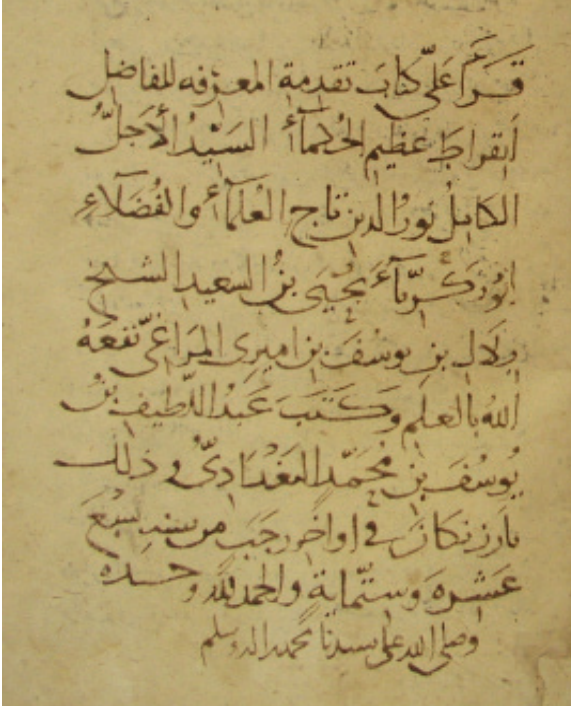 قَرَأَ عَلَيّ كتابَ تقدمة المعرفه للفاضل
ابقراط عظيم الحُكماءُ السَيّدُ الأجلُّ
الكامِلُ نورُ الدين تاج العُلماءُ والفُضَلاءِ
ابُو زكريّاءَ يحْيَى بنُ السعيد الشيخ
بن يوسُفَ بن اميرى المَرَاغى نَفعَهُ
اللهُ بالعلمِ وكَتَبَ عَبدُ اللّطيف بنُ
يُوسُفَ بن مُحمّدٍ البَغْدَادىُّ وذلك
بارزنكان في اواخر رجَب من سنه سبعَ
عشره وستّمايةٍ والحمد لله وحده
وصلى الله على سيدنا محمد اله وسلم